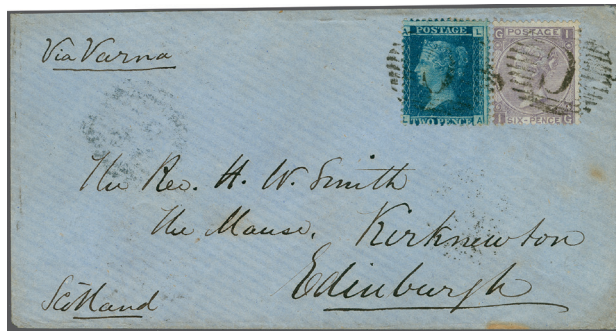 Via Varna
POSTAGE
A L
TWO PENCE
L A
G POSTAGE I
I SIX-PENCE G
C
The Rev. H. W. Smith
The Manse, Kirknewton
Edinburgh
Scotland